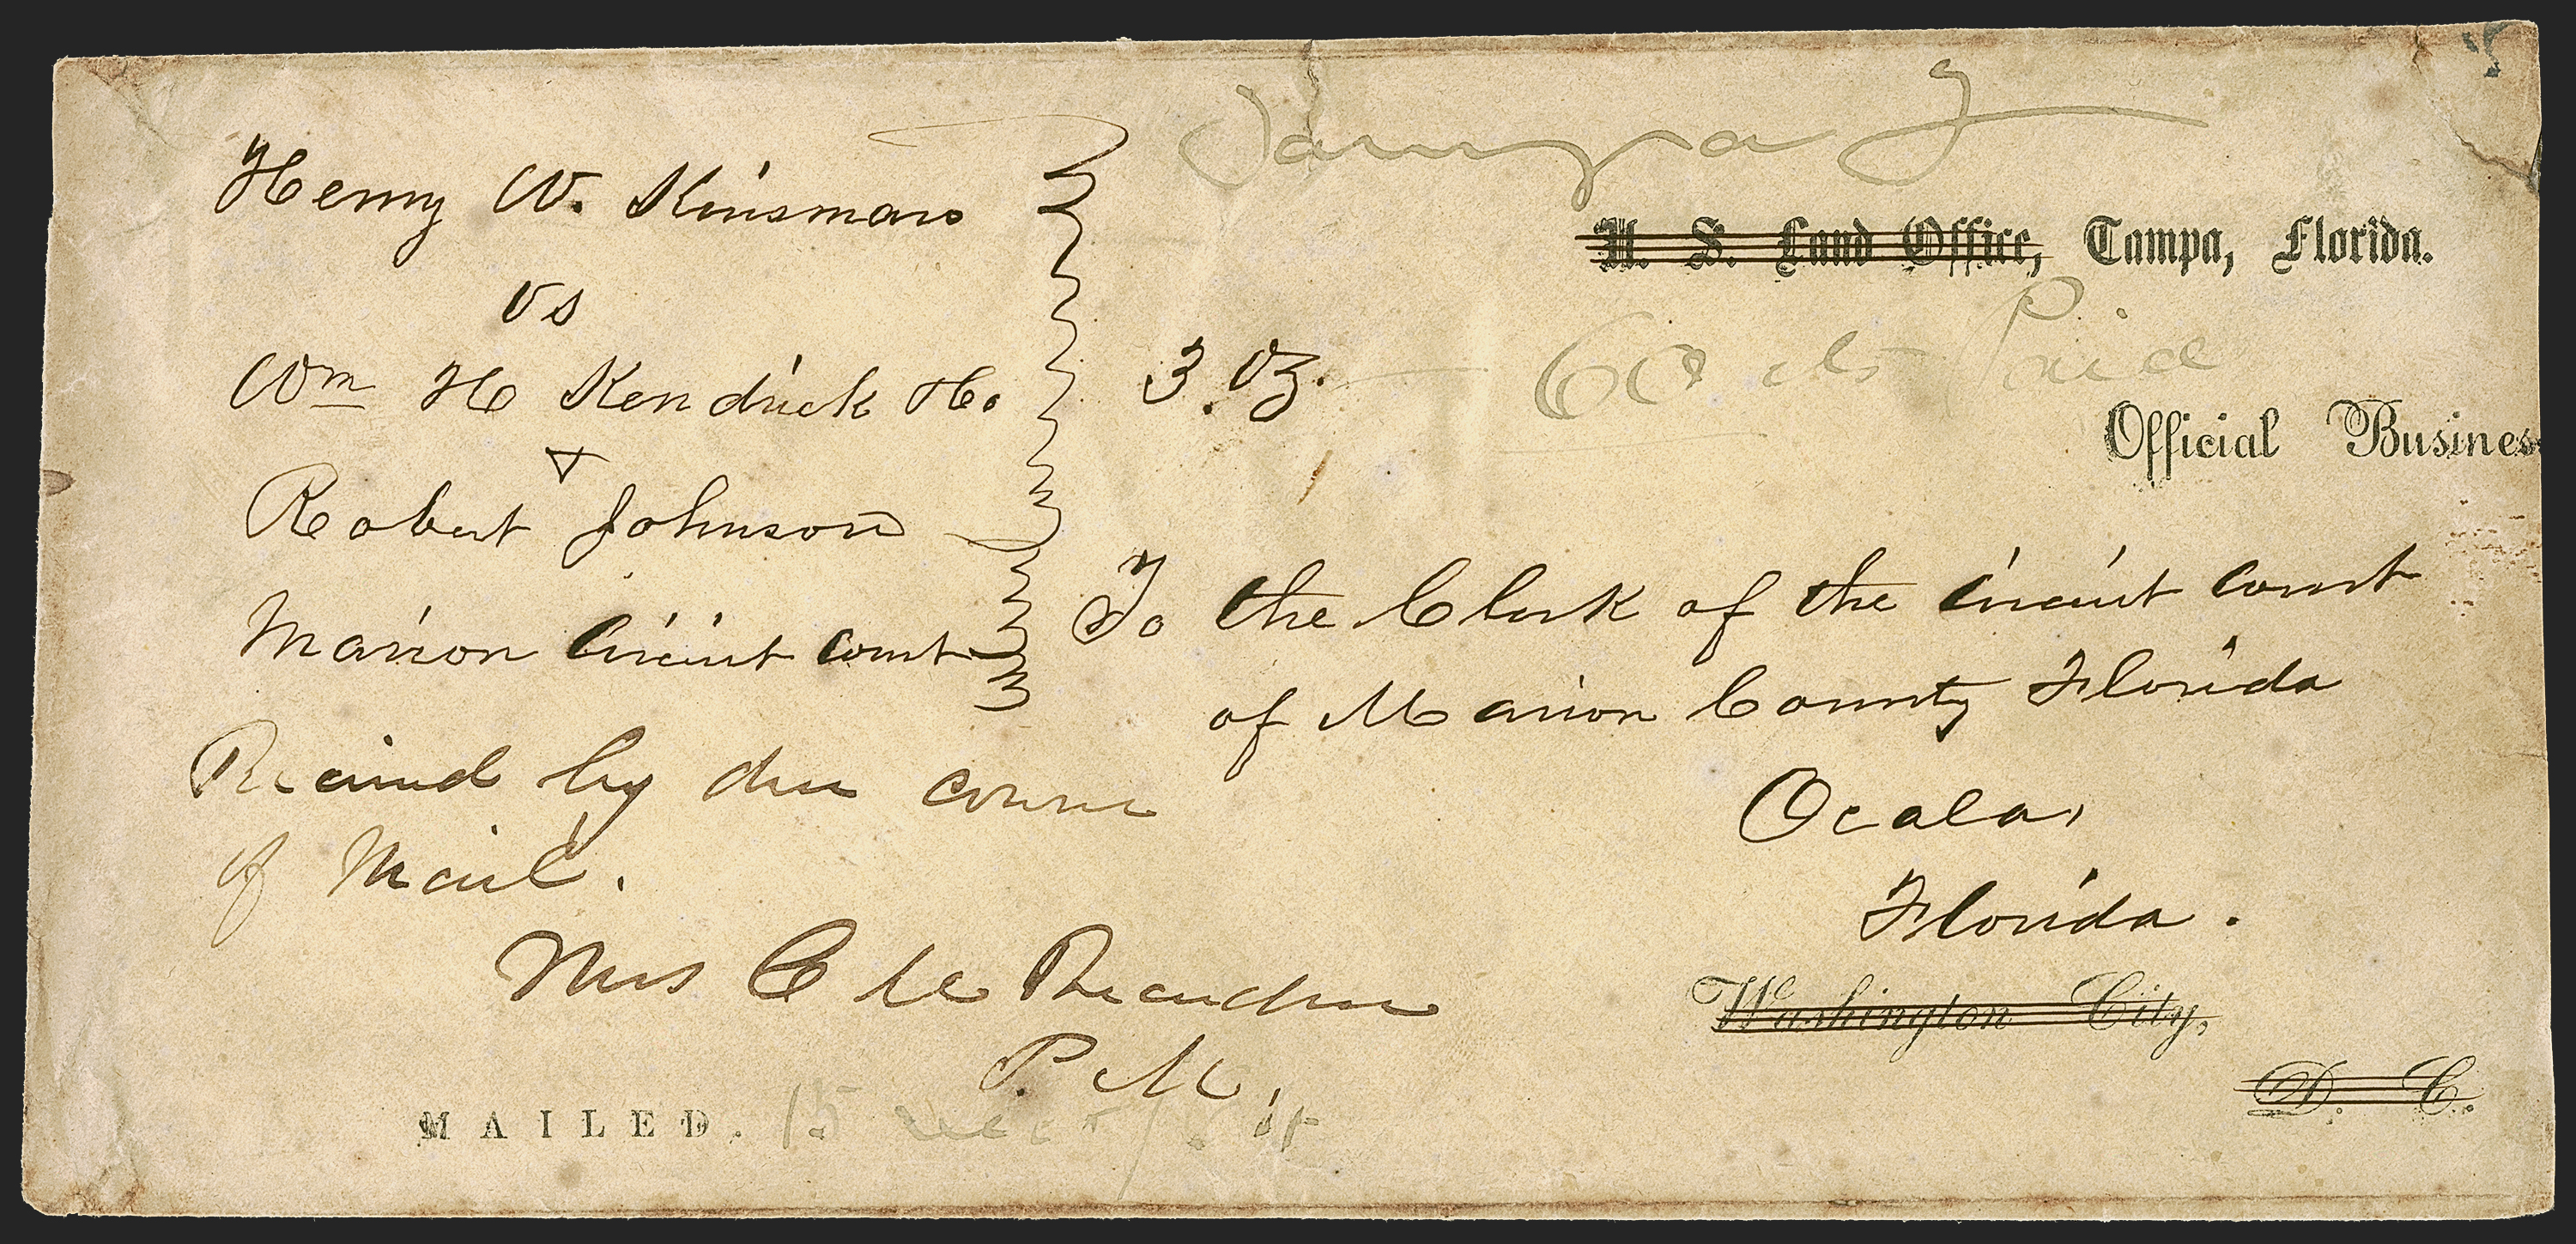 Henry W. Kinsman
vs
Wm H Kendrick H.
&
Robert Johnson
Marion Circuit court
Received by due course
of Mail.
Mrs C
P. M.
MAILED. 15
Tampa F
U. S. Land Office, Tampa, Florida.
3. Oz. 60 cts Paid
Official Busines
To the Clerk of the Circuit court
of Marion County Florida
Ocala,
Florida.
Washington City,
D. C.